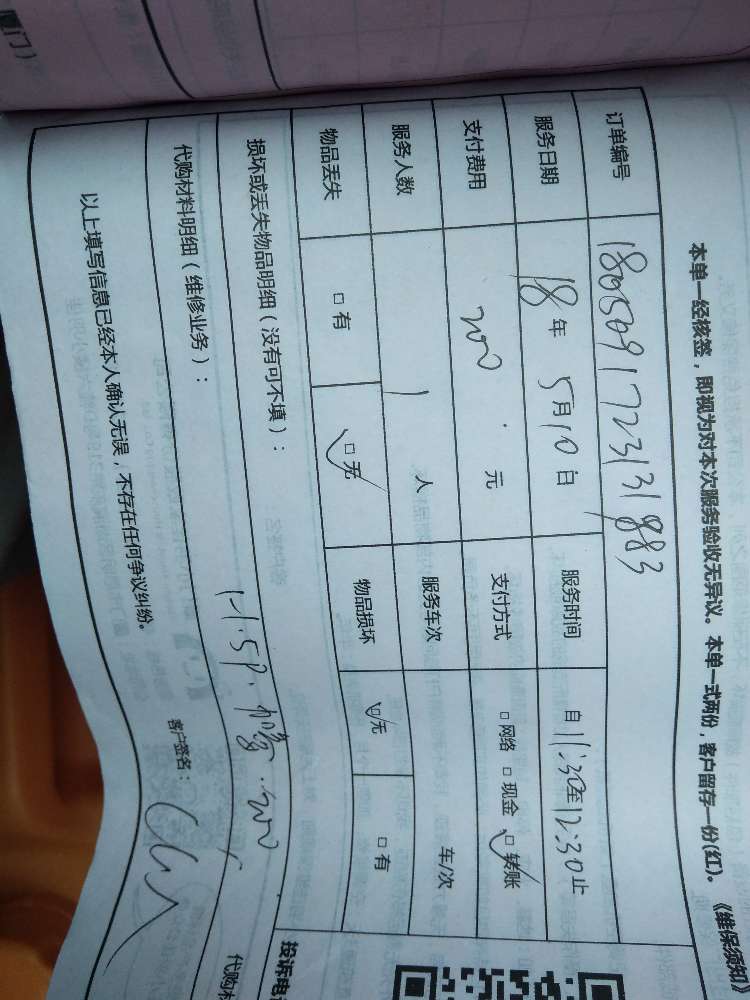 厦门）
本单一经核签，即视为对本次服务验收无异议。本单一式两份，客户留存一份(红)。《维保须知》
订单编号 180509172313188 3
服务日期 18年 5月10日 服务时间 自11:30至12:30止
支付费用 200 元 支付方式 □网络 □现金 □转账
服务人数 1 人 服务车次 车/次
物品丢失 □有 □无 物品损坏 □无 □有
损坏或丢失物品明细（没有可不填）：
代购材料明细（维修业务）：
1-1.5P. 200
以上填写信息已经本人确认无误，不存在任何争议纠纷。
客户签名：
投诉电
代购材